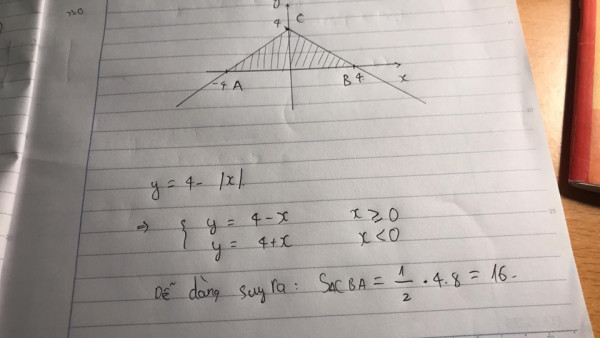 y
4 C
-4 A B 4 x
y = 4 - |x|.
⇒ { y = 4 - x x ≥ 0
y = 4 + x x < 0
Dễ dàng suy ra: SACBA = 1/2 . 4.8 = 16.